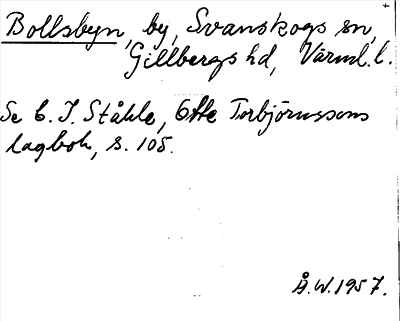 Bollsbyn, by, Svanskogs sn,
Gillbergs hd, Värml. l.
Se C. I. Ståhle, Otte Torbjörnssons
lagbok, s. 105.
Å.W. 1957.